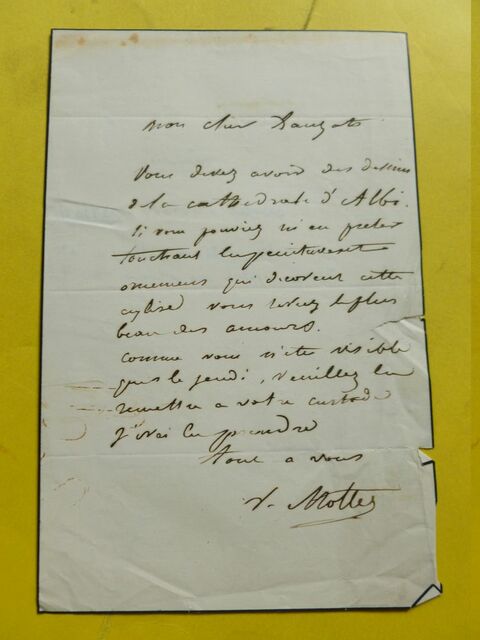 mon cher Dauzats
Vous devez avoir des dessins
de la cathédrale d'Albi.
Si vous pouviez m'en preter
touchant les peintures et
ornemens qui decorent cette
eglise vous seriez le plus
beau des amours.
comme vous n'ete visible
que le jeudi, veuillez les
remettre a votre custode
j'irai les prendre
tout a vous
V. Mottez